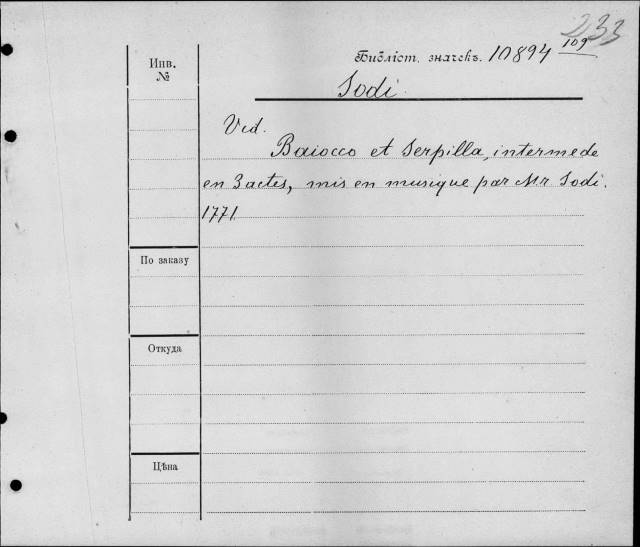 233
Инв.
№
Библіот. значекъ. 10894 109
Sodi.
Vid.
Baiocco et Serpilla, intermede
en 3 actes, mis en musique par Mr. Sodi.
1771.
По заказу
Откуда
Цѣна